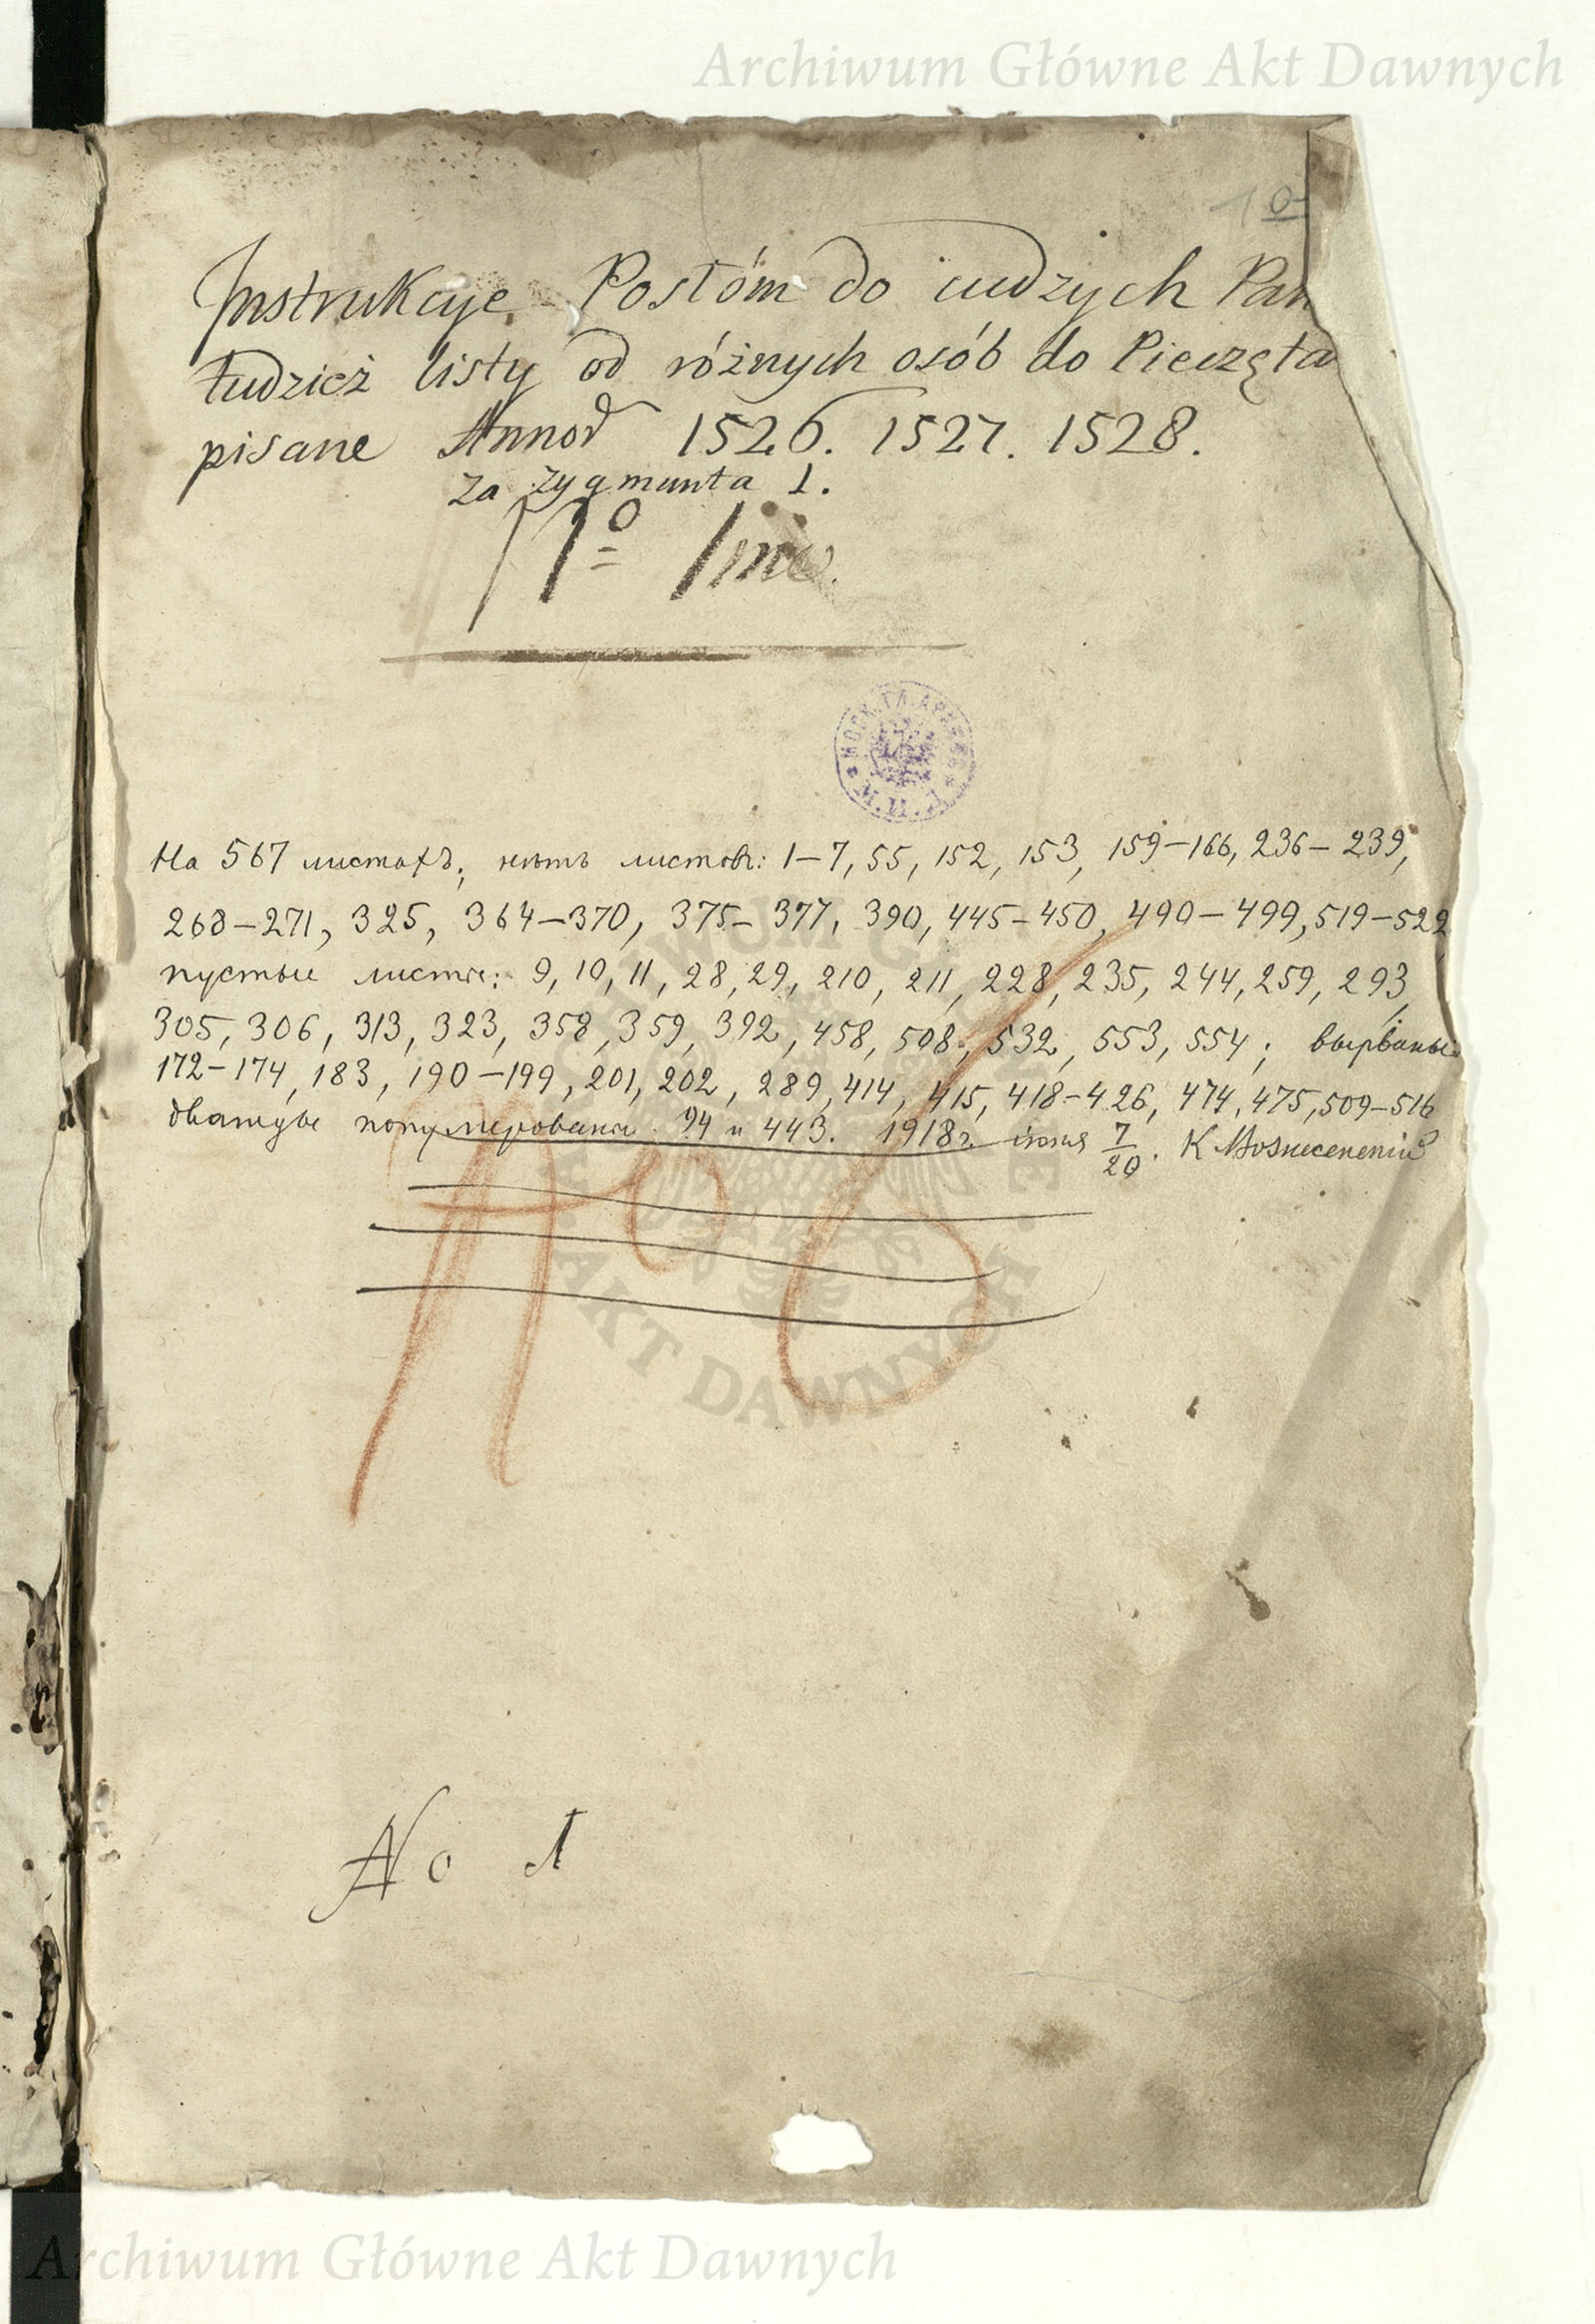 Archiwum Główne Akt Dawnych
1 0
Instrukcye Posłóm do cudzych Pań
tudzież listy od różnych osób do Pieczęta
pisane Annor 1526. 1527. 1528.
za zygmunta 1.
N° 1mo.
МОСК. ГЛ. АРХИВЪ М.И.Д.
На 567 листахъ; нѣтъ листовъ: 1–7, 55, 152, 153, 159–166, 236–239,
268–271, 325, 364–370, 375–377, 390, 445–450, 490–499, 519–522
пустые листы: 9, 10, 11, 28, 29, 210, 211, 228, 235, 244, 259, 293,
305, 306, 313, 323, 358, 359, 392, 458, 508, 532, 553, 554; вырваны:
172–174, 183, 190–199, 201, 202, 289, 414, 415, 418–426, 474, 475, 509–516
дважды нонумерованы 94 и 443. 1918 г. іюня 7/20. К Вознесенскій
No 6
ARCHIWUM GŁÓWNE AKT DAWNYCH
No 1
Archiwum Główne Akt Dawnych